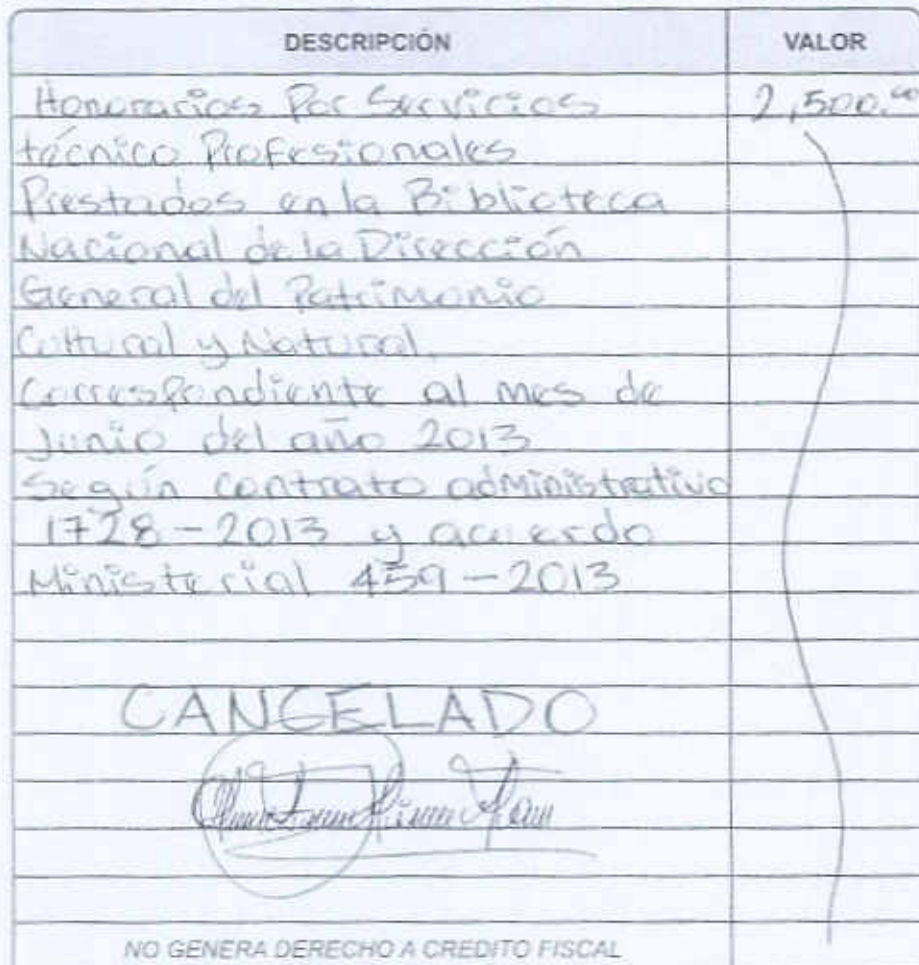 DESCRIPCIÓN VALOR
Honorarios Por Servicios 2,500.00
técnico Profesionales
Prestados en la Biblioteca
Nacional de la Dirección
General del Patrimonio
Cultural y Natural.
Correspondiente al mes de
Junio del año 2013
Según contrato administrativo
1728-2013 y acuerdo
Ministerial 459-2013
CANCELADO
NO GENERA DERECHO A CREDITO FISCAL